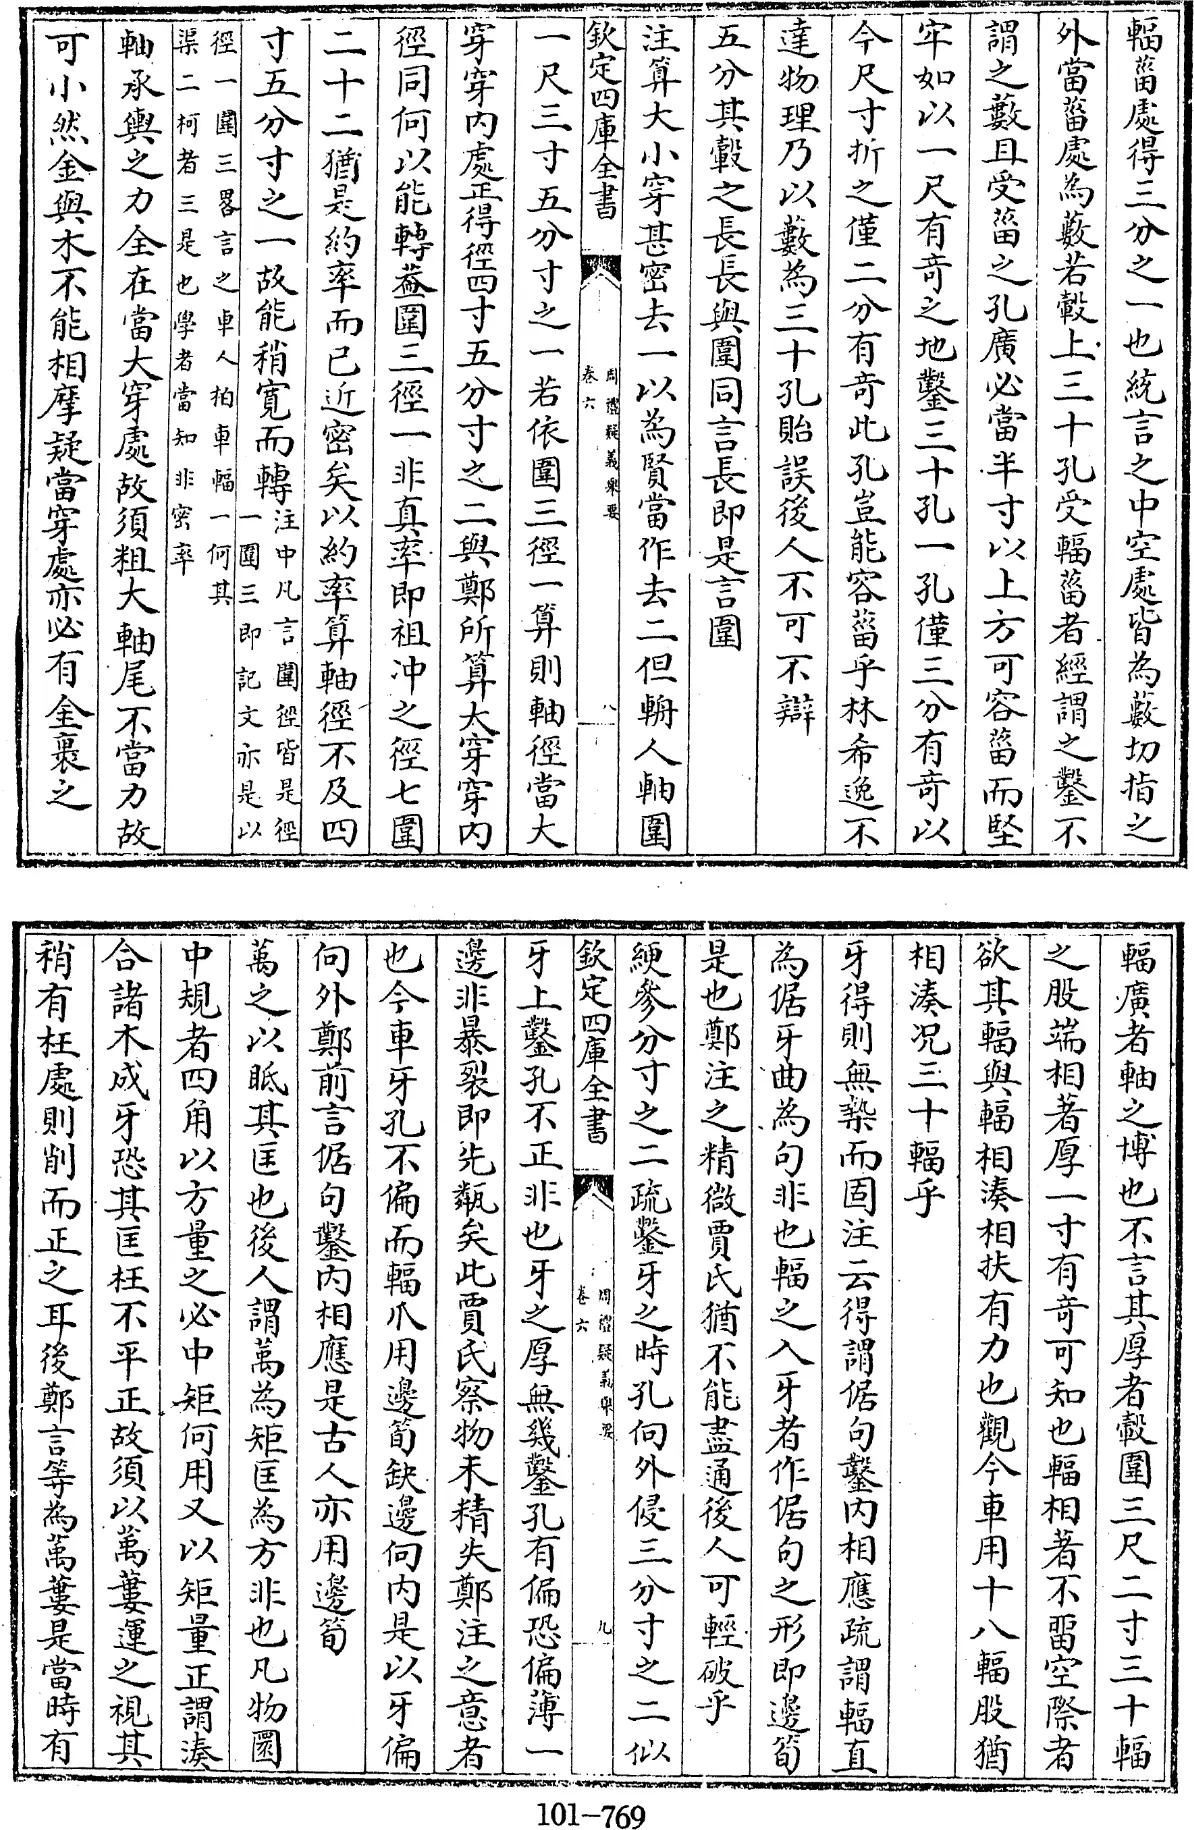 輻菑處得三分之一也統言之中空處皆為藪切指之
外當菑處為藪若轂上三十孔受輻菑者經謂之鑿不
謂之藪且受菑之孔廣必當半寸以上方可容菑而堅
牢如以一尺有竒之地鑿三十孔一孔僅三分有竒以
今尺寸折之僅二分有竒此孔豈能容菑乎林希逸不
達物理乃以藪為三十孔貽誤後人不可不辯
五分其轂之長長與圍同言長即是言圍
注算大小穿甚密去一以為賢當作去二但輈人軸圍
欽定四庫全書
周禮疑義舉要
卷六
八
一尺三寸五分寸之一若依圍三徑一算則軸徑當大
穿穿内處正得徑四寸五分寸之二與鄭所算大穿穿内
徑同何以能轉葢圍三徑一非真率即祖冲之徑七圍
二十二猶是約率而已近密矣以約率算軸徑不及四
寸五分寸之一故能稍寛而轉
注中凡言圍徑皆是徑
一圍三即記文亦是以
徑一圍三畧言之車人柏車輻一何其
渠二柯者三是也學者當知非密率
軸承輿之力全在當大穿處故須粗大軸尾不當力故
可小然金與木不能相摩疑當穿處亦必有金裹之
輻廣者軸之博也不言其厚者轂圍三尺二寸三十輻
之股端相著厚一寸有竒可知也輻相著不留空際者
欲其輻與輻相湊相扶有力也觀今車用十八輻股猶
相湊况三十輻乎
牙得則無槷而固注云得謂倨句鑿内相應疏謂輻直
為倨牙曲為句非也輻之入牙者作倨句之形即邊筍
是也鄭注之精微賈氏猶不能盡通後人可輕破乎
綆參分寸之二疏鑿牙之時孔向外侵三分寸之二似
欽定四庫全書
周禮疑義舉要
卷六
九
牙上鑿孔不正非也牙之厚無幾鑿孔有偏恐偏薄一
邊非暴裂即先甐矣此賈氏察物未精失鄭注之意者
也今車牙孔不偏而輻爪用邊筍缺邊向内是以牙偏
向外鄭前言倨句鑿内相應是古人亦用邊筍
萬之以眡其匡也後人謂萬為矩匡為方非也凡物圜
中規者四角以方量之必中矩何用又以矩量正謂湊
合諸木成牙恐其匡枉不平正故須以萬蔞運之視其
稍有枉處則削而正之耳後鄭言等為萬蔞是當時有
101-769